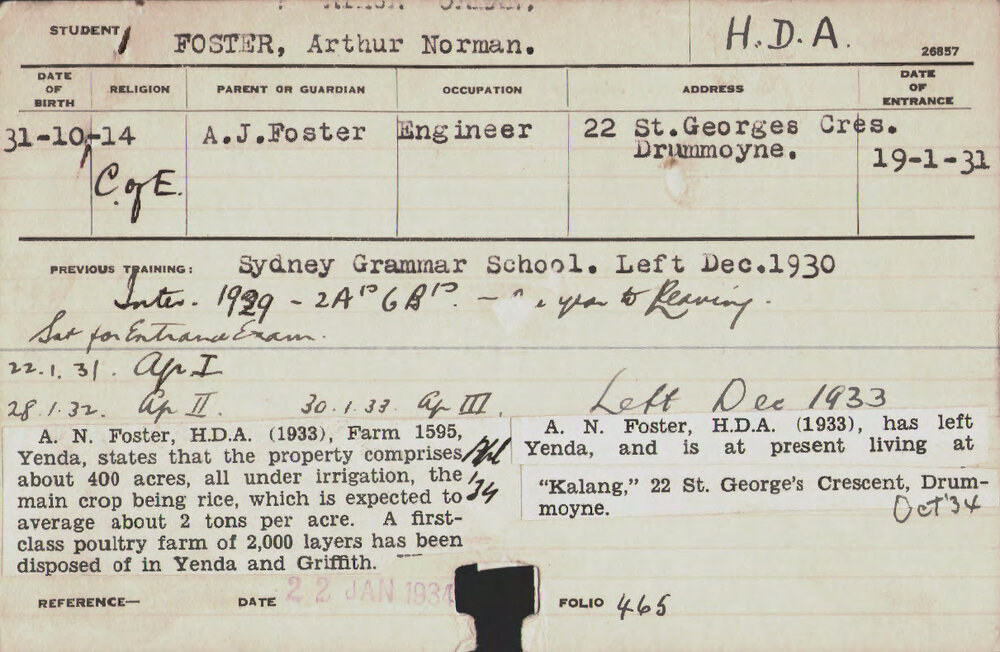 STUDENT FOSTER, Arthur Norman. H.D.A. 26857
DATE OF BIRTH RELIGION PARENT OR GUARDIAN OCCUPATION ADDRESS DATE OF ENTRANCE
31-10-14 A.J.Foster Engineer 22 St.Georges Cres.
Drummoyne. 19-1-31
C. of E.
PREVIOUS TRAINING: Sydney Grammar School. Left Dec.1930
Inter. 1929 - 2A's 6B's. - year to Leaving.
Sat for Entrance Exam.
22.1.31. Ap. I
28.1.32. Ap II. 30.1.33. Ap III. Left Dec 1933
A. N. Foster, H.D.A. (1933), Farm 1595,
Yenda, states that the property comprises
about 400 acres, all under irrigation, the
main crop being rice, which is expected to
average about 2 tons per acre. A first-
class poultry farm of 2,000 layers has been
disposed of in Yenda and Griffith.
'34
A. N. Foster, H.D.A. (1933), has left
Yenda, and is at present living at
"Kalang," 22 St. George's Crescent, Drum-
moyne.
Oct '34
REFERENCE— DATE 22 JAN 1934 FOLIO 465